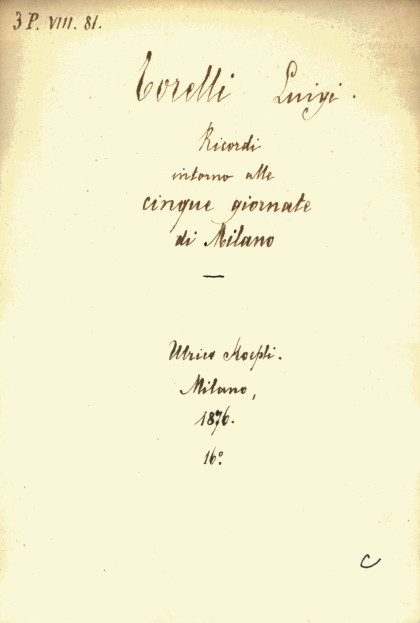 3 P. VIII. 81.
Torelli Luigi.
Ricordi
intorno alle
cinque giornate
di Milano
—
Ulrico Hoepli.
Milano,
1876.
16º
C